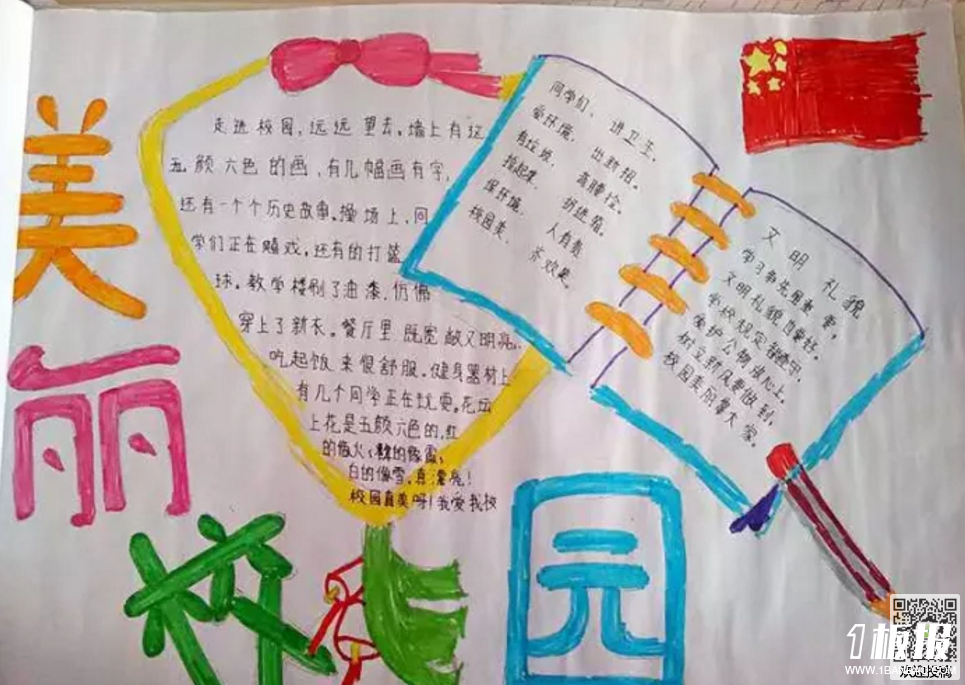 美丽校园
走进校园,远远望去。墙上有这
五颜六色的画,有几幅画有字,
还有一个个历史故事。操场上,同
学们正在嬉戏,还有的打篮
球。教学楼刷了油漆,仿佛
穿上了新衣。餐厅里既宽敞又明亮,
吃起饭来很舒服。健身器材上
有几个同学正在玩耍。花坛
上花是五颜六色的,红
的像火;粉的像霞;
白的像雪,真漂亮!
校园真美呀!我爱我校
同学们、讲卫生,
爱环境、出新招。
有垃圾、高腰捡。
捡起来、扔进箱。
保环境、人有责
校园美、齐欢畅。
文明礼貌
学习事先最重要,
文明礼貌自要好。
学校规定都遵守,
爱护公物放心上。
树立新风要做到,
校园美丽靠大家。
1板报
WWW.1BANBAO.COM
欢迎投稿